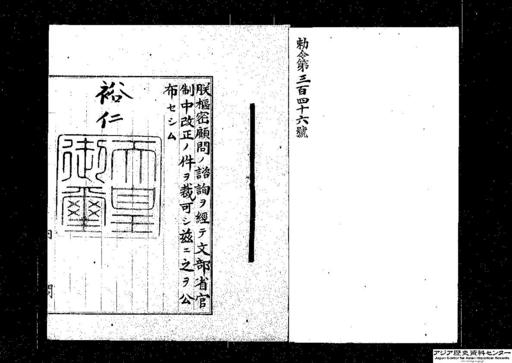 勅令第三百四十六號
朕樞密顧問ノ諮詢ヲ經テ文部省官
制中改正ノ件ヲ裁可シ茲ニ之ヲ公
布セシム
裕仁
天皇
御璽
内 閣
アジア歴史資料センター
Japan Center for Asian Historical Records